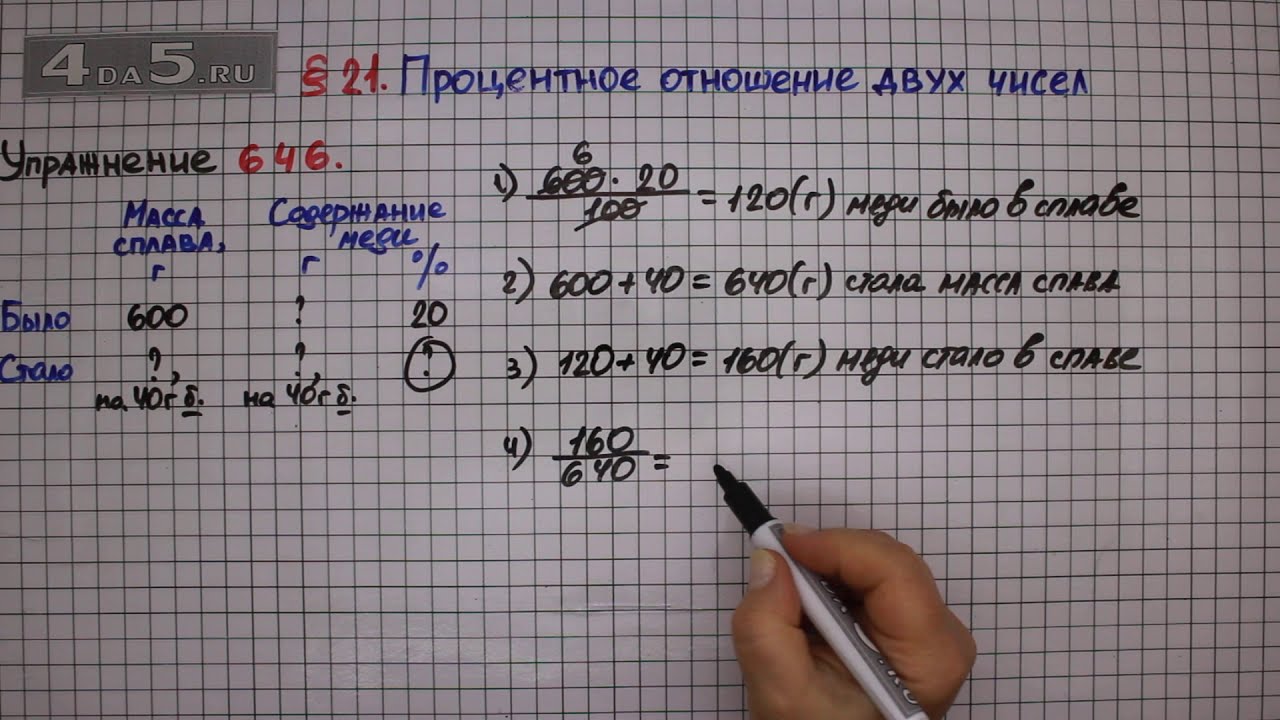 4DA5.RU
§ 21. Процентное отношение двух чисел
Упражнение 646.
Масса сплава, г
Содержание меди
г %
Было 600 ? 20
Стало ?, ?, ?
на 40г б. на 40г б.
6
1) 600 · 20 / 100 = 120(г) меди было в сплаве
2) 600 + 40 = 640(г) стала масса спава
3) 120 + 40 = 160(г) меди стало в спаве
4) 160 / 640 =